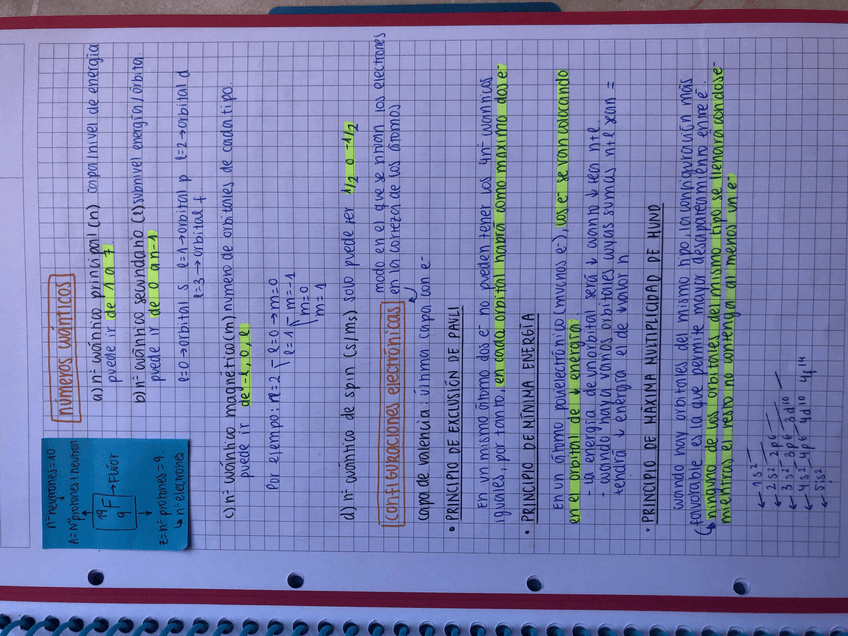 nº neutrones = 10
A = Nº protones + neutron
19
9 F → Flúor
z = nº protones = 9
↳ nº electrones
números cuánticos
a) nº cuántico principal (n) capa/nivel de energía
puede ir de 1 a 7
b) nº cuántico secundario (l) subnivel energía/órbita
puede ir de 0 a n-1
l=0 → orbital s l=1 → orbital p l=2 → orbital d
l=3 → orbital f.
c) nº cuántico magnético (m) número de orbitales de cada tipo.
puede ir de -l, 0, l
Por ejemplo: n=2 l=0 → m=0
l=1 m=-1
m=0
m=1
d) nº cuántico de spin (s/ms) solo puede ser 1/2 o -1/2
configuraciones electrónicas modo en el que se sitúan los electrones
en la corteza de los átomos
capa de valencia: última capa con e-
• PRINCIPIO DE EXCLUSIÓN DE PAULI
En un mismo átomo dos e- no pueden tener los 4 nº cuánticos
iguales, por tanto, en cada orbital habrá como máximo dos e-
• PRINCIPIO DE MÍNIMA ENERGÍA
En un átomo polielectrónico (muchos e-), los e- se van colocando
en el orbital de ↓ energía
- La energía de un orbital será ↓ cuanto ↓ sean n+l
- cuando haya varios orbitales cuyas sumas n+l sean =
tendrá ↓ energía el de ↓ valor n
• PRINCIPIO DE MÁXIMA MULTIPLICIDAD DE HUND
cuando hay orbitales del mismo tipo, la configuración más
favorable es la que permite mayor desapareamiento entre e-
↳ ninguno de los orbitales del mismo tipo se llenará con dos e-
mientras el resto no contenga al menos un e-
1s2
2s2 2p6
3s2 3p6 3d10
4s2 4p6 4d10 4f14
5s2